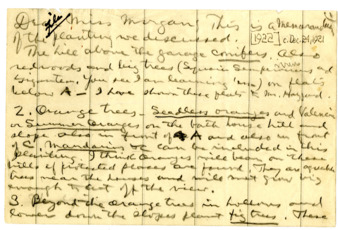 File
Dear Miss Morgan, This is a Memorandum
of the planting we discussed.
1922 c. Dec 29, 1921
The hill above the garage conifers. Also
redwoods and big trees (Sequoia Sempervirens and
Gigantea. You see I am learning) on
below A — I have shown these plats to Mr. Hazard
2. Orange trees — Seedless oranges and Valencia
or Summer oranges on the both house hill and
slope also in front of A and also in front
of C. Mandarins can be included in this
planting. I think oranges will bear on these
hills if protected places are found. They are quick
trees near the houses and will not grow big
enough to cut off the view.
3. Beyond the orange trees in hollows and
lower down the slopes plant fig trees. These